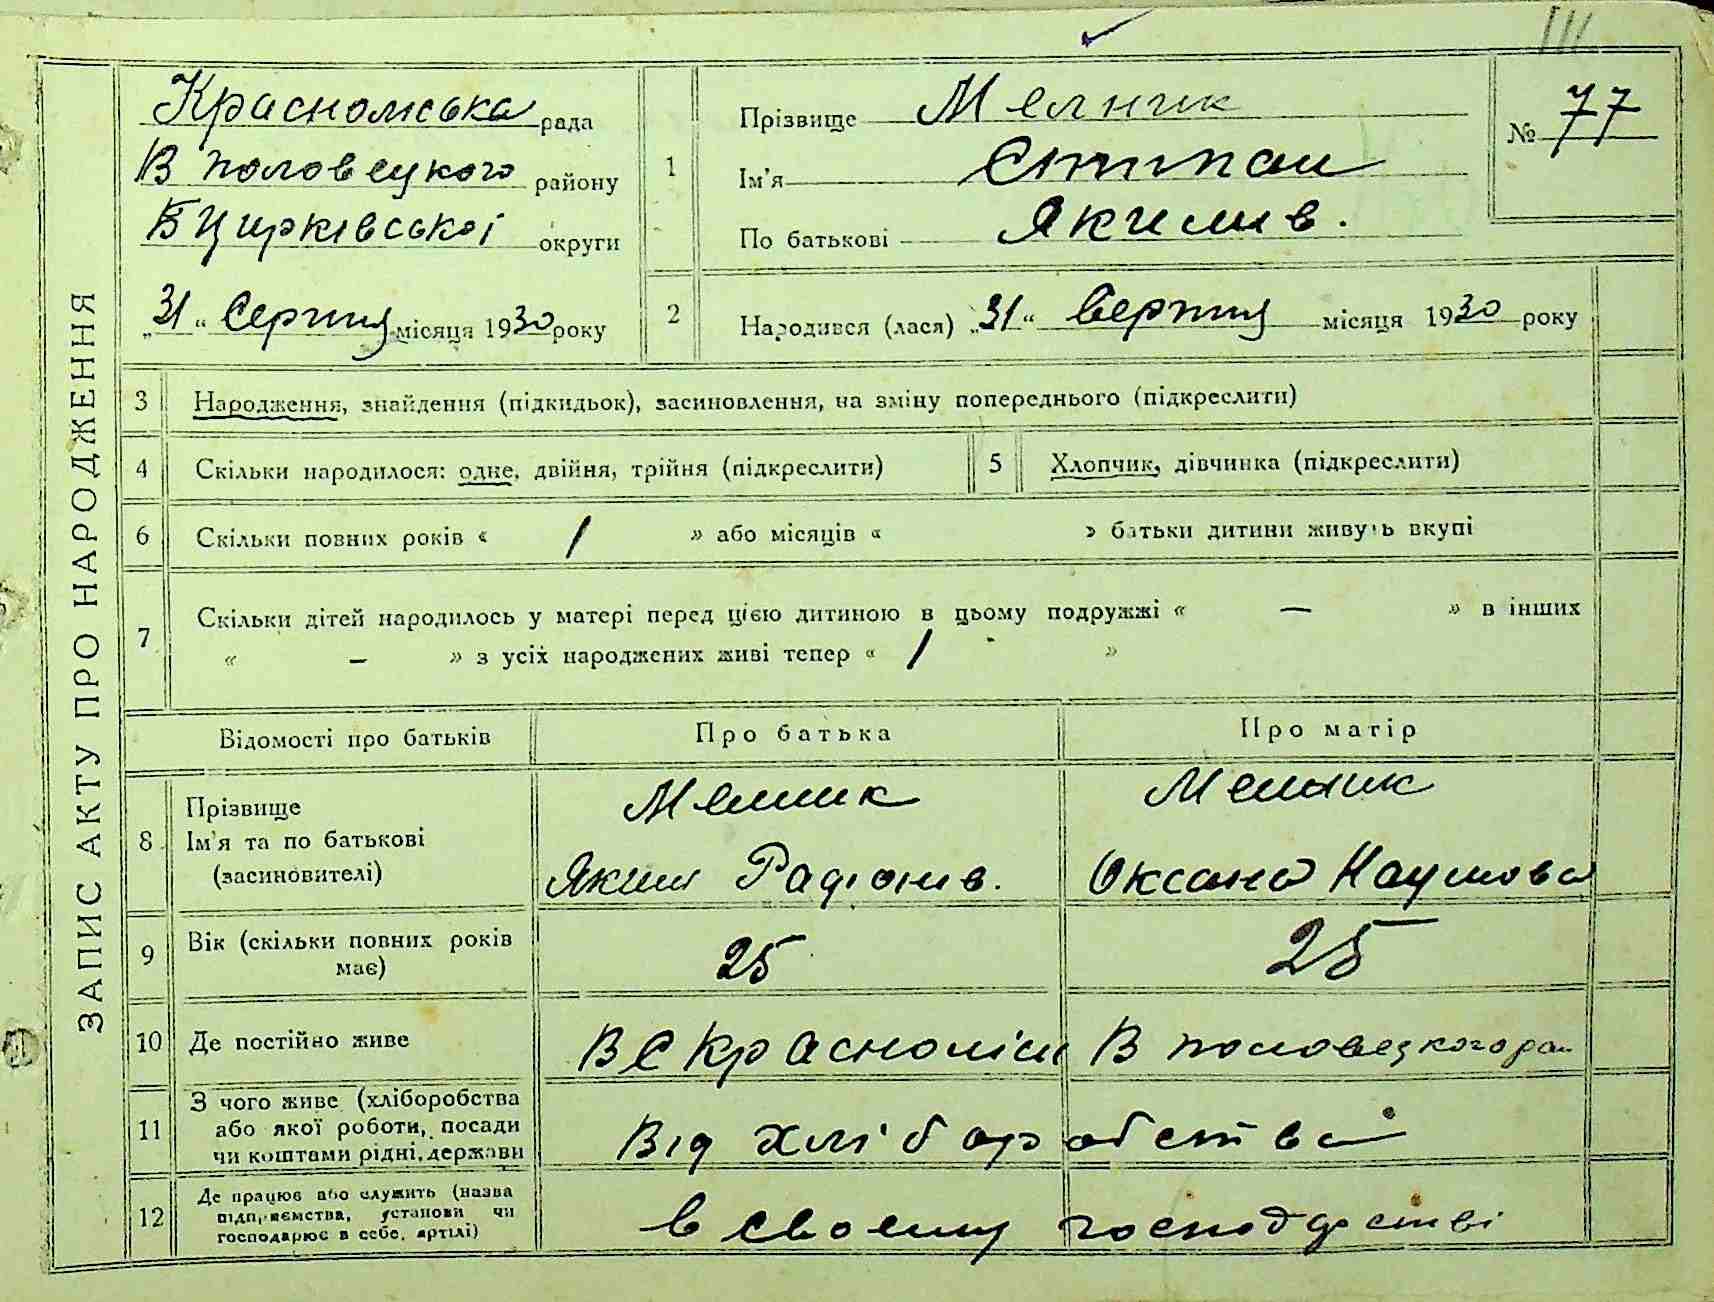 III
ЗАПИС АКТУ ПРО НАРОДЖЕННЯ
Краснолиська рада
В Половецького району
БЦерківської округи
„31“ Серпня місяця 1930 року
1
Прізвище Мельник
Ім'я Степан
По батькові Якимів.
№ 77
2
Народився (лася) „31“ Серпня місяця 1930 року
3 Народження, знайдення (підкидьок), засиновлення, на зміну попереднього (підкреслити)
4 Скільки народилося: одне, двійня, трійня (підкреслити)
5 Хлопчик, дівчинка (підкреслити)
6 Скільки повних років « 1 » або місяців « » батьки дитини живуть вкупі
7 Скільки дітей народилось у матері перед цією дитиною в цьому подружжі « — » в інших
« — » з усіх народжених живі тепер « 1 »
Відомості про батьків
Про батька
Про матір
8 Прізвище
Ім'я та по батькові
(засиновителі)
Мельник
Яким Радіонів.
Мельник
Оксана Наумова
9 Вік (скільки повних років
має)
25
25
10 Де постійно живе
В С Красноліси В Половецького ра
11 З чого живе (хліборобства
або якої роботи, посади
чи коштами рідні, держави
Від хліборобства
12 Де працює або служить (назва
підприємства, установи чи
господарює в себе, артілі)
в своєму господарстві